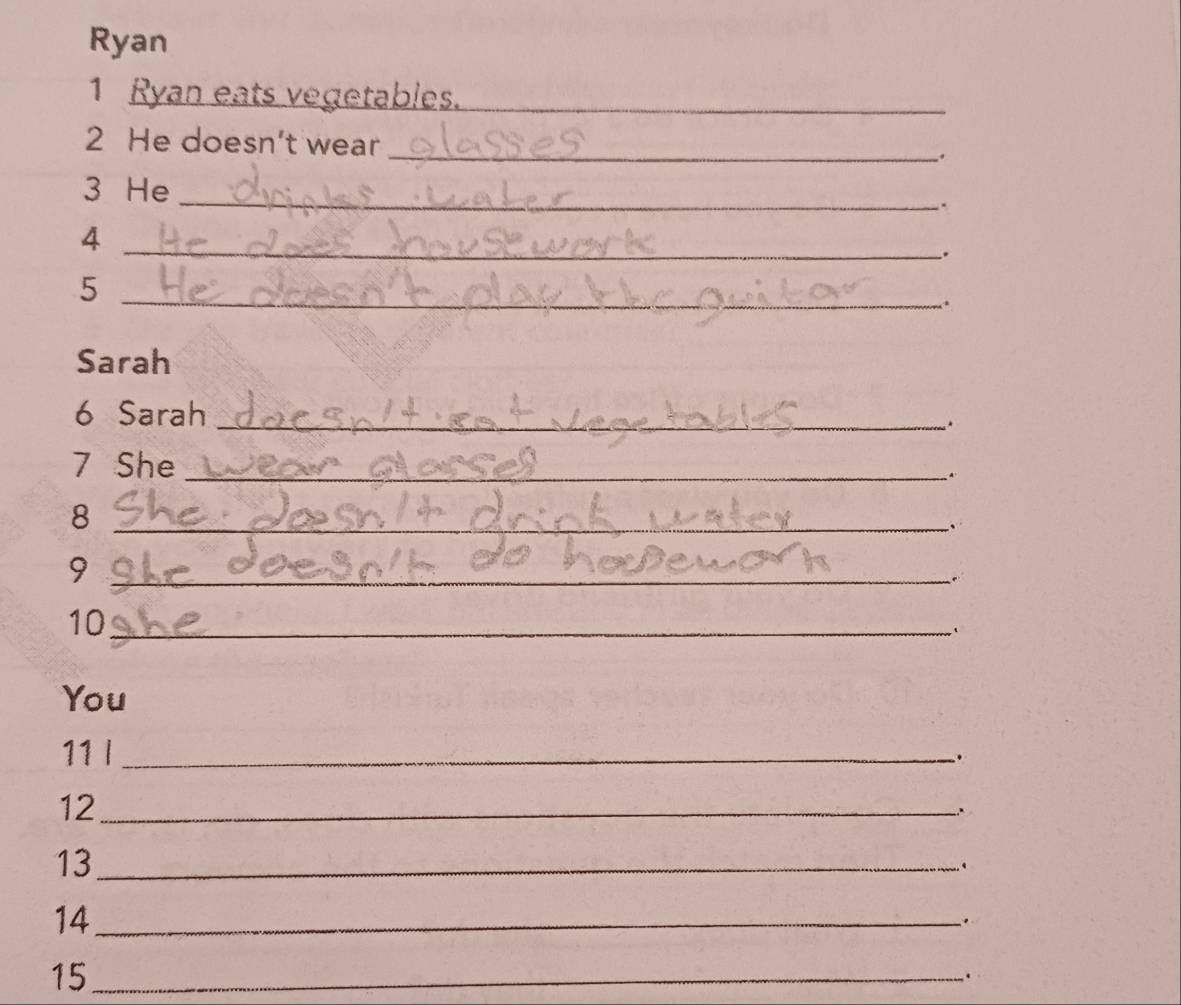 Ryan
1 Ryan eats vegetables.
2 He doesn't wear glasses.
3 He drinks water.
4 He does housework.
5 He doesn't play the guitar.
Sarah
6 Sarah doesn't eat vegetables.
7 She wear glasses.
8 She doesn't drink water.
9 She doesn't do housework.
10 She.
You
11 I.
12
13
14
15